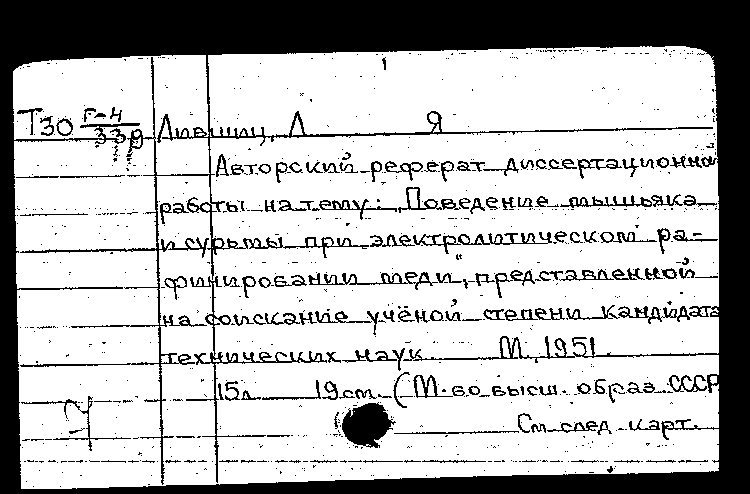 Т30 Г-4 Лившиц, Л Я
339
Авторский реферат диссертационно
работы на тему: „Поведение мышьяка
и сурьмы при электролитическом ра-
финировании меди", представленной
на соискание учёной степени кандидата
технических наук. М., 1951.
15л 19см. (М-во высш. образ. СССР
См след. карт.